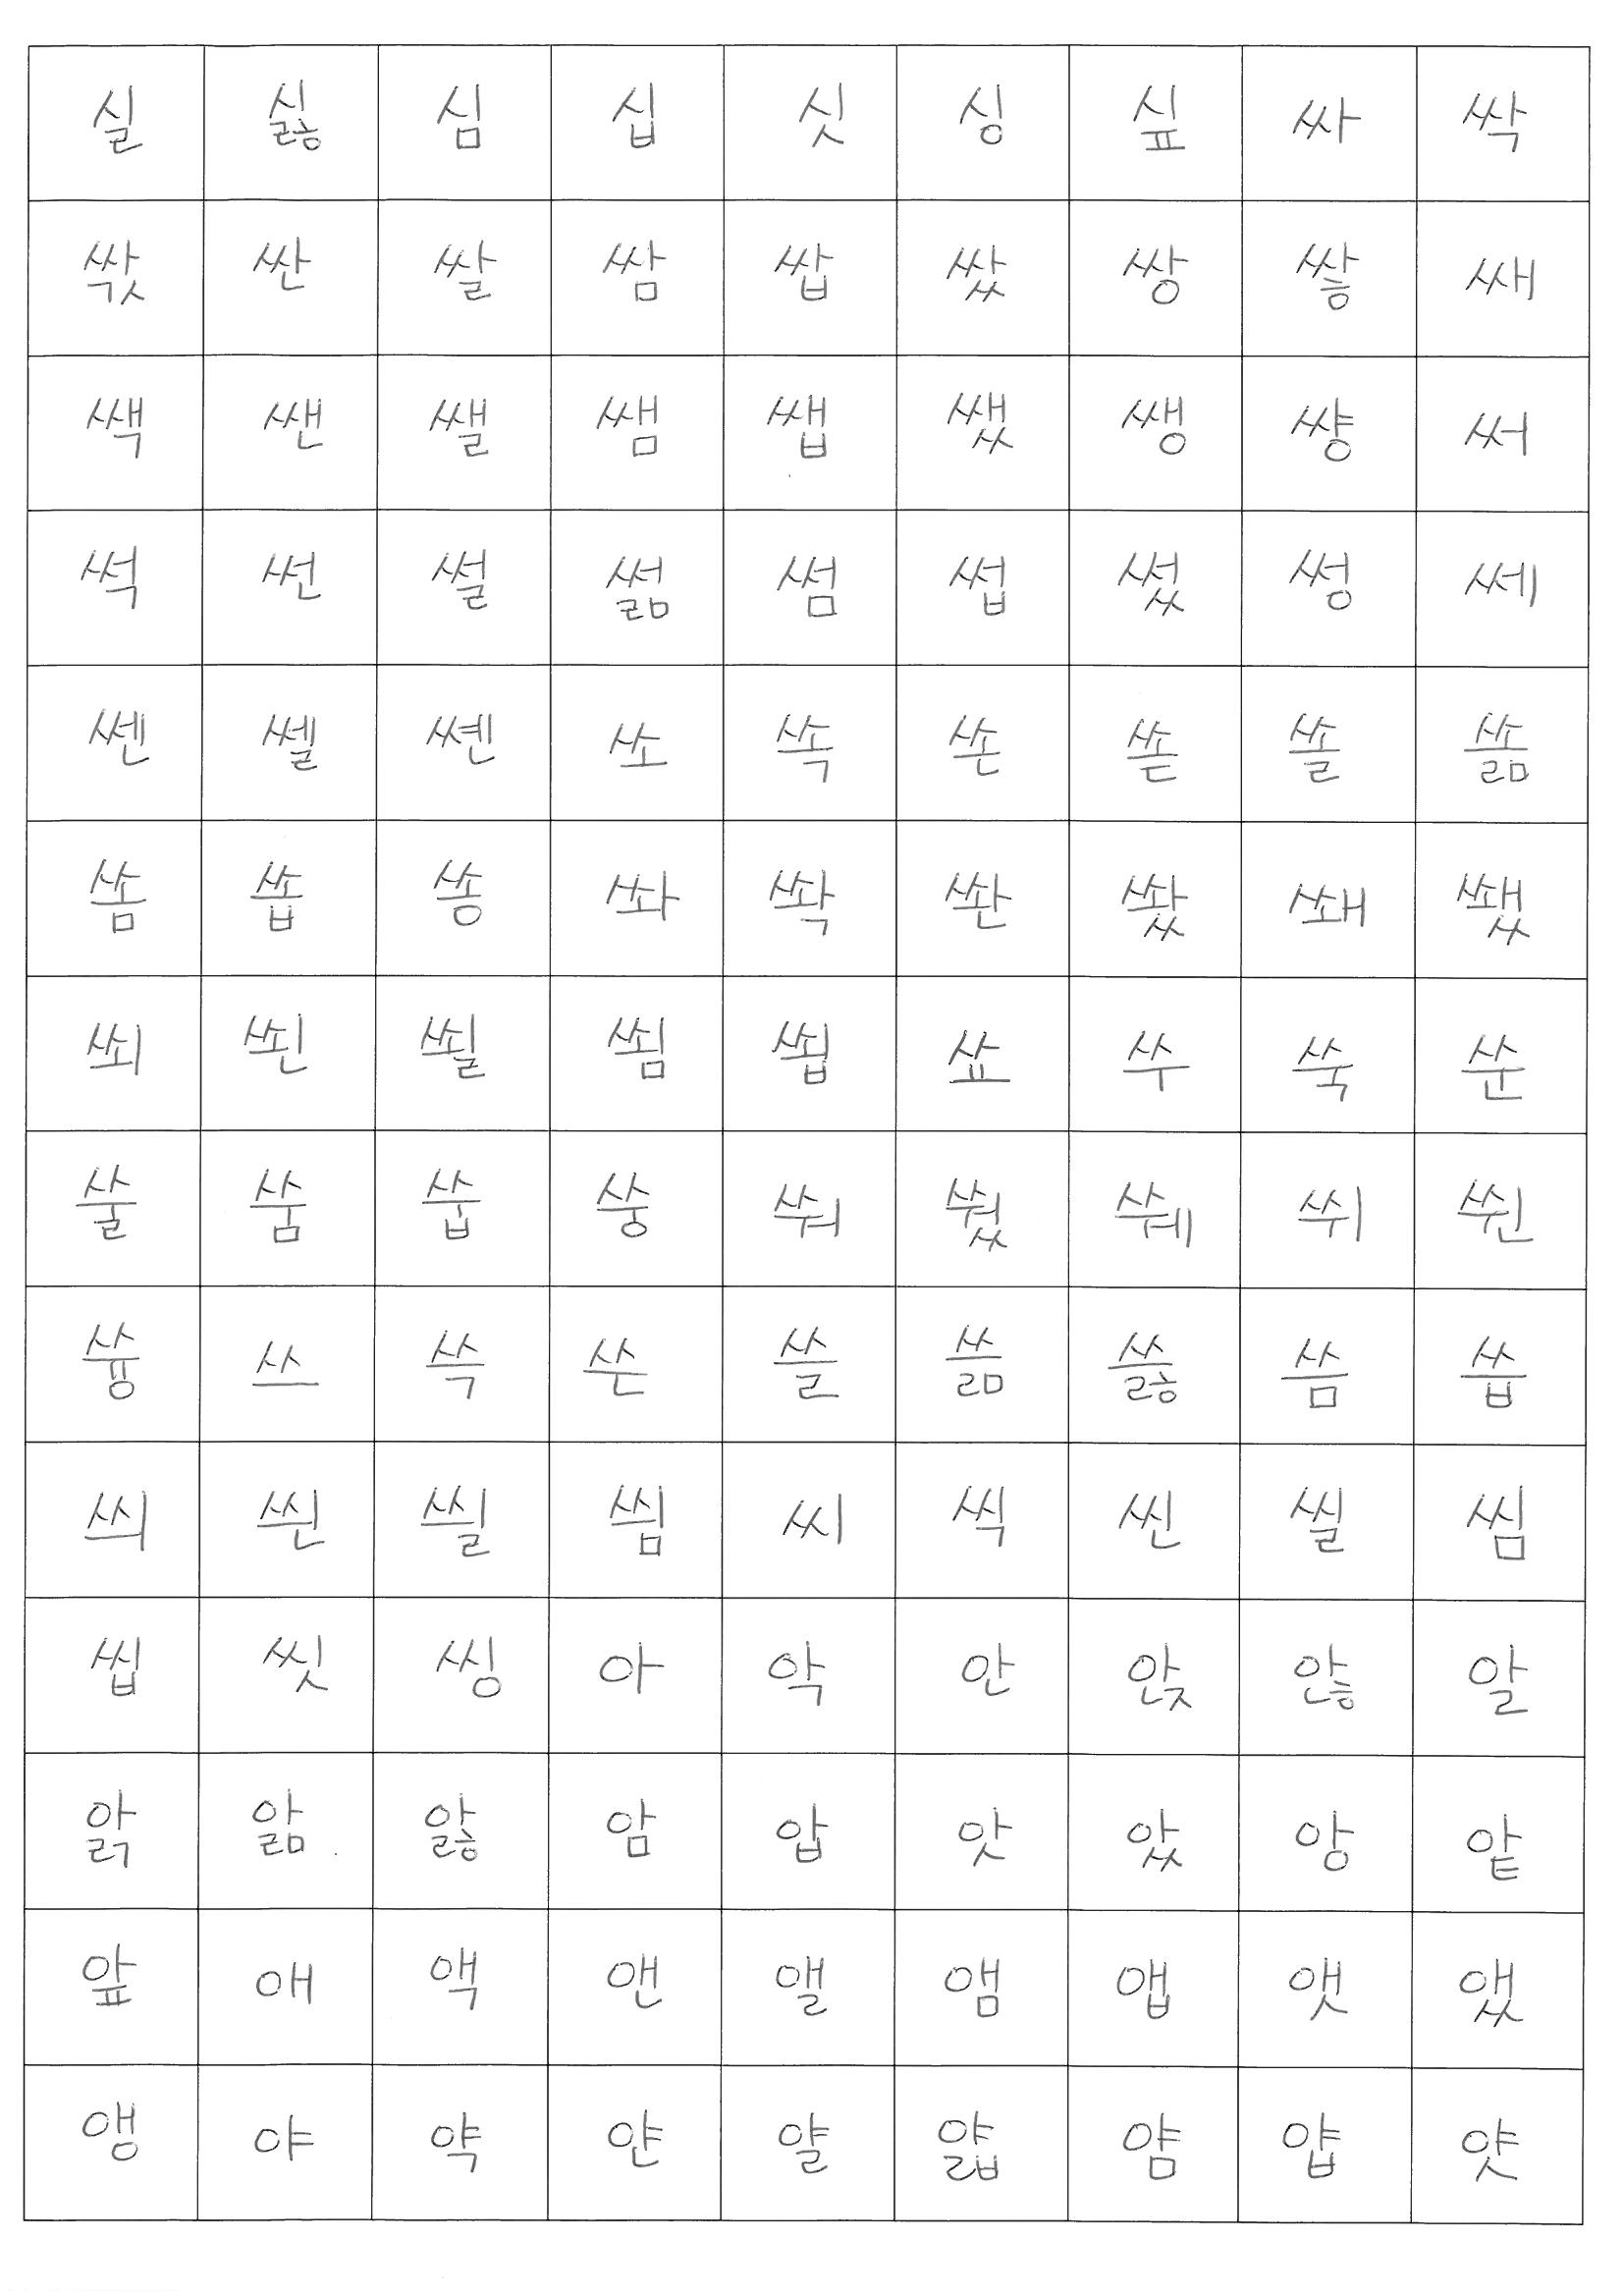 실 싫 심 십 싯 싱 싶 싸 싹
싻 싼 쌀 쌈 쌉 쌌 쌍 쌓 쌔
쌕 쌘 쌜 쌤 쌥 쌨 쌩 썅 써
썩 썬 썰 썲 썸 썹 썼 썽 쎄
쎈 쎌 쎈 쏘 쏙 쏜 쏟 쏠 쏢
쏨 쏩 쏭 쏴 쏵 쏸 쐈 쐐 쐤
쐬 쐰 쐴 쐼 쐽 쑈 쑤 쑥 쑨
쑬 쑴 쑵 쑹 쒀 쒔 쒜 쒸 쒼
쓩 쓰 쓱 쓴 쓸 쓺 쓿 씀 씁
씌 씐 씔 씜 씨 씩 씬 씰 씸
씹 씻 씽 아 악 안 앉 않 알
앍 앎 앓 암 압 앗 았 앙 앝
앞 애 액 앤 앨 앰 앱 앳 앴
앵 야 약 얀 얄 얇 얌 얍 얏